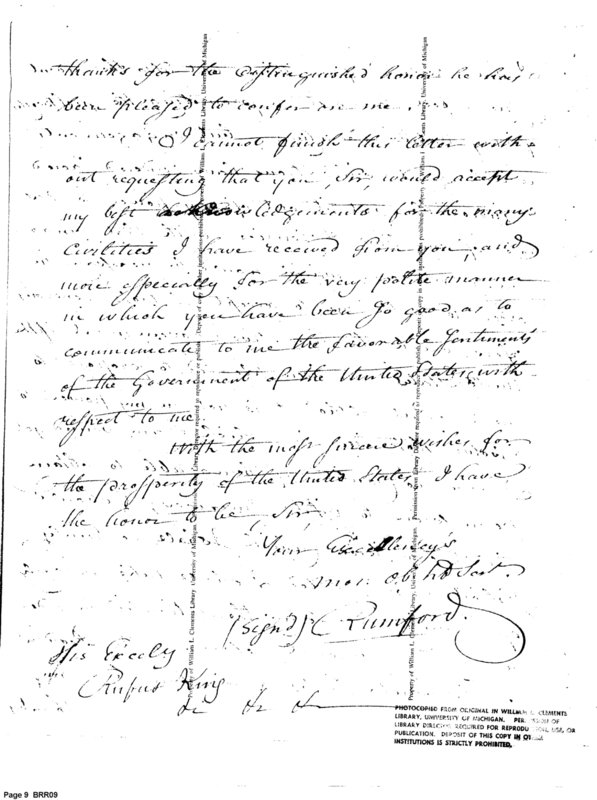 thanks for the distinguished honor he has
been pleased to confer on me.
I cannot finish this letter with-
out requesting that you, Sir, would accept
my best acknowledgements for the many
Civilities I have received from you, and
more especially for the very polite manner
in which you have been so good as to
communicate to me the favorable Sentiments
of the Government of the United States with
respect to me.
With the most sincere wishes for
the prosperity of the United States I have
the honor to be, Sir,
Your Excellency's
(Signd) Rumford.
His Excely
Rufus King
&c &c &c
Property of William L. Clements Library. University of Michigan.
Property of William L. Clements Library. University of Michigan
PHOTOCOPIED FROM ORIGINAL IN WILLIAM L. CLEMENTS
LIBRARY, UNIVERSITY OF MICHIGAN. OF
LIBRARY REQUIRED FOR USE, OR
PUBLICATION. DEPOSIT OF THIS COPY IN OTHER
INSTITUTIONS IS STRICTLY PROHIBITED.
Page 9 BRR09